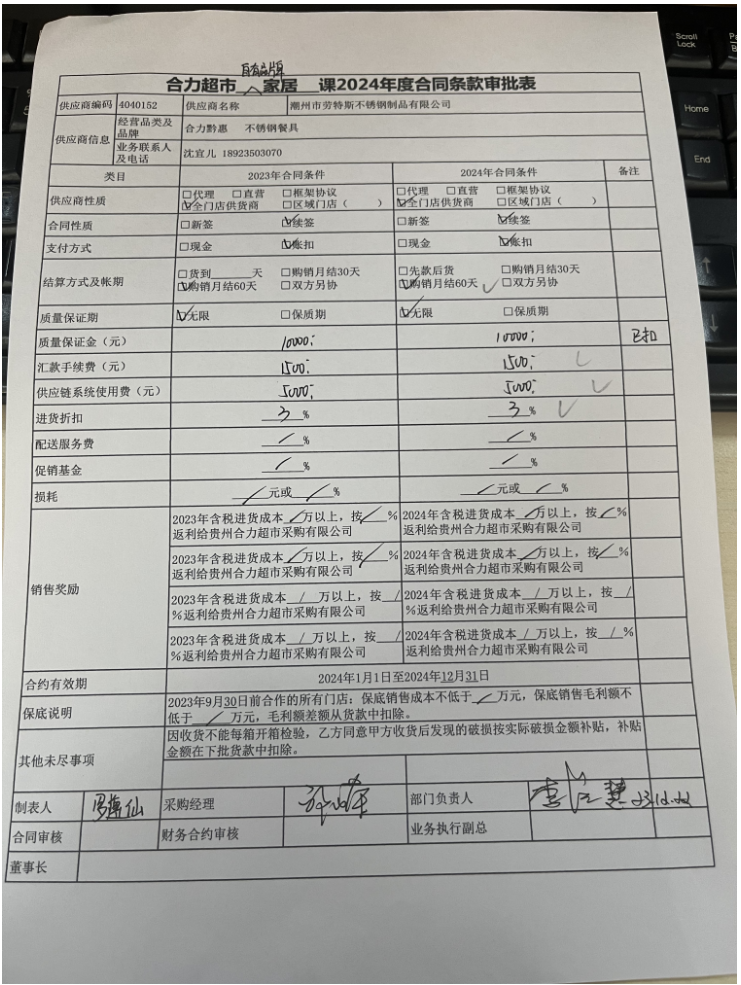 Scroll
Lock
Home
End
自有品牌
合力超市 家居 课2024年度合同条款审批表
供应商编码 4040152 供应商名称 潮州市劳特斯不锈钢制品有限公司
供应商信息 经营品类及品牌 合力黔惠 不锈钢餐具
业务联系人及电话 沈宜儿 18923503070
类目 2023年合同条件 2024年合同条件 备注
供应商性质 □代理 □直营 □框架协议 □代理 □直营 □框架协议
☑全门店供货商 □区域门店( ) ☑全门店供货商 □区域门店( )
合同性质 □新签 ☑续签 □新签 ☑续签
支付方式 □现金 ☑帐扣 □现金 ☑帐扣
结算方式及帐期 □货到______天 □购销月结30天 □先款后货 □购销月结30天
☑购销月结60天 □双方另协 ☑购销月结60天 ✓ □双方另协
质量保证期 ☑无限 □保质期 ☑无限 □保质期
质量保证金(元) 10000; 10000; 已扣
汇款手续费(元) 1500; 1500; ✓
供应链系统使用费(元) 5000; 5000; ✓
进货折扣 3 % 3 % ✓
配送服务费 / % / %
促销基金 / % / %
损耗 / 元或 / % / 元或 / %
销售奖励
2023年含税进货成本 / 万以上,按 / % 2024年含税进货成本 / 万以上,按 / %
返利给贵州合力超市采购有限公司 返利给贵州合力超市采购有限公司
2023年含税进货成本 / 万以上,按 / % 2024年含税进货成本 / 万以上,按 / %
返利给贵州合力超市采购有限公司 返利给贵州合力超市采购有限公司
2023年含税进货成本 / 万以上,按 / 2024年含税进货成本 / 万以上,按 /
%返利给贵州合力超市采购有限公司 %返利给贵州合力超市采购有限公司
2023年含税进货成本 / 万以上,按 / 2024年含税进货成本 / 万以上,按 / %
%返利给贵州合力超市采购有限公司 返利给贵州合力超市采购有限公司
合约有效期 2024年1月1日至2024年12月31日
保底说明 2023年9月30日前合作的所有门店:保底销售成本不低于 / 万元,保底销售毛利额不
低于 / 万元,毛利额差额从货款中扣除。
其他未尽事项 因收货不能每箱开箱检验,乙方同意甲方收货后发现的破损按实际破损金额补贴,补贴
金额在下批货款中扣除。
制表人 采购经理 部门负责人 23.12.22
合同审核 财务合约审核 业务执行副总
董事长